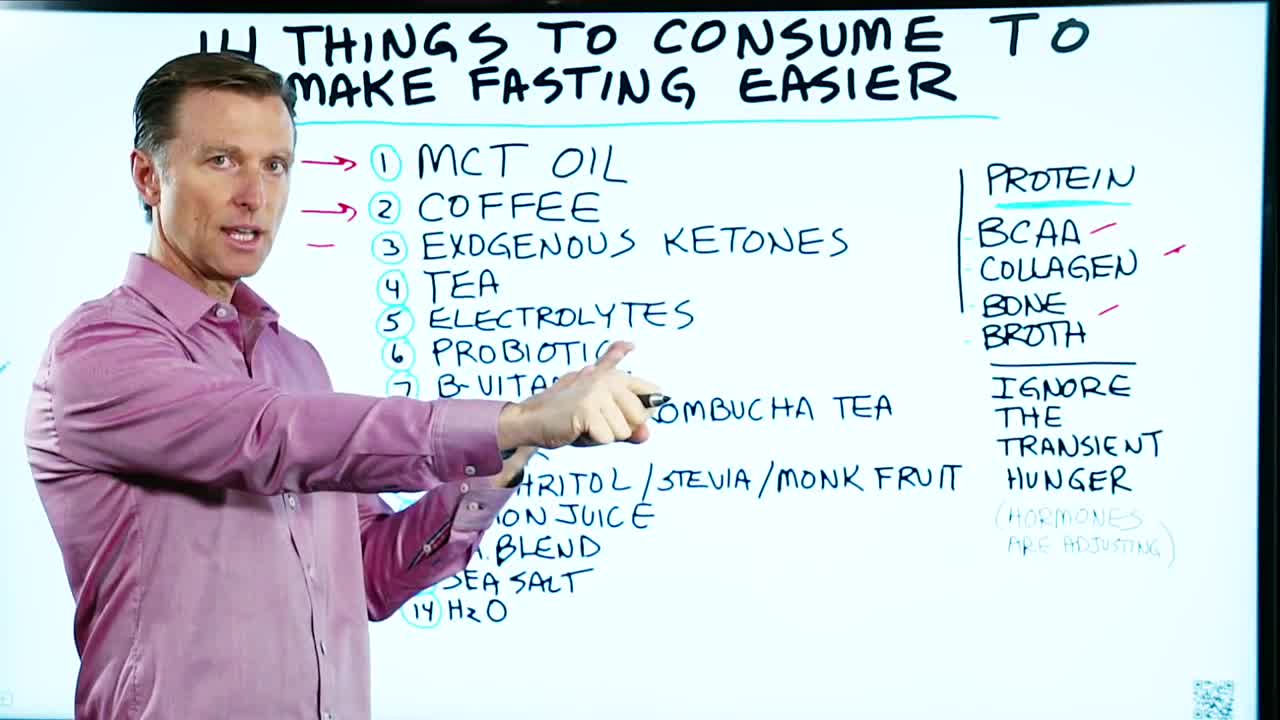 14 THINGS TO CONSUME TO
MAKE FASTING EASIER
1 MCT OIL
2 COFFEE
3 EXOGENOUS KETONES
4 TEA
5 ELECTROLYTES
6 PROBIOTIC
7 B-VITA
OMBUCHA TEA
HRITOL/STEVIA/MONK FRUIT
ON JUICE
A. BLEND
SEA SALT
14 H2O
PROTEIN
BCAA
COLLAGEN
BONE
BROTH
IGNORE
THE
TRANSIENT
HUNGER
(HORMONES
ARE ADJUSTING)